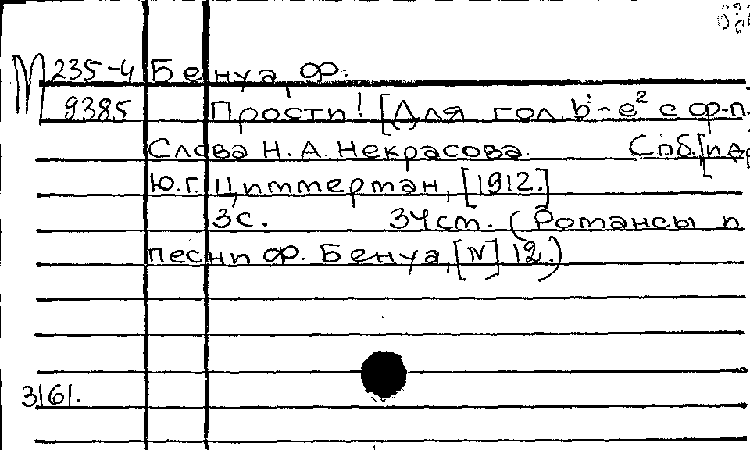 М 235-4 Бенуа, Ф.
9385 Прости! [Для гол. b-e² с ф-п.
Слова Н. А. Некрасова. Спб.
Ю.Г. Циммерман, [1912.]
3с. 34 см. (Романсы и
песни Ф. Бенуа, [N] 12.)
3161.